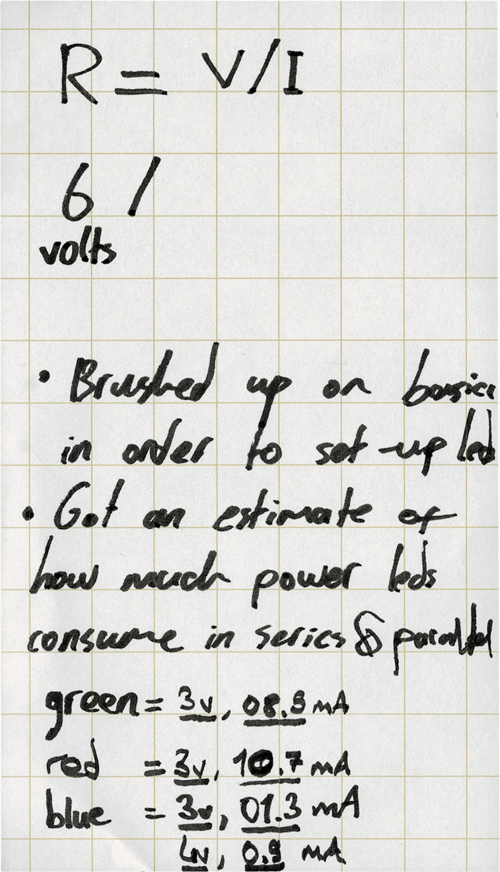 R = V/I
6 /
volts
• Brushed up on basics
in order to set-up led
• Got an estimate of
how much power leds
consume in series & parallel
green = 3v, 08.9 mA
red = 3v, 10.7 mA
blue = 3v, 01.3 mA
0.9 mA